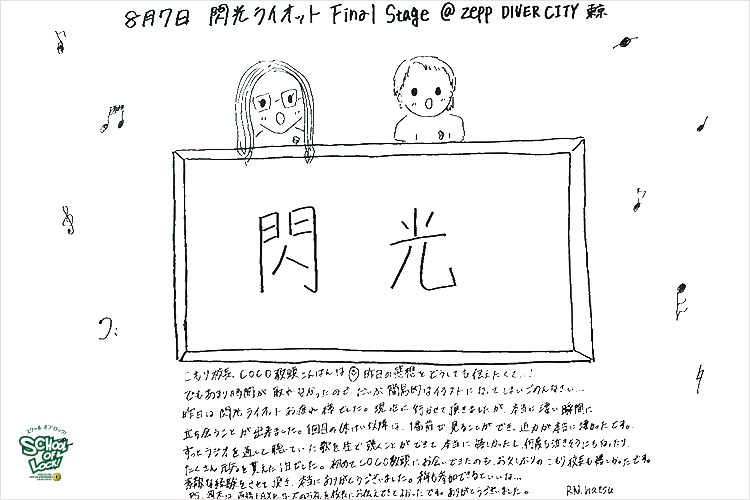 8月7日 閃光ライオット Final Stage @ Zepp DIVER CITY 東京
閃光
こもり校長、COCO教頭こんばんは 昨日の感想をどうしても伝えたくて…!
でもあまり時間が取れなかったので、だいぶ簡易的なイラストになってしまいごめんなさい…
昨日は閃光ライオットお疲れ様でした。現地に行かせて頂きましたが、本当に凄い瞬間に
立ち会うことが出来ました。1回目の休けい以降は、1番前で見ることができ、迫力が本当に凄かったです。
ずっとラジオを通して聴いていた歌を生で聴くことができて本当に嬉しかったし、何度も泣きそうになったり、
たくさん元気を貰えた1日でした。初めてCOCO教頭にお会いできたのも、お久しぶりのこもり校長も嬉しかったです。
素敵な経験をさせて頂き、本当にありがとうございました。
PS. ありがとうございました。
RN.
スクールオブロック!
SCHOOL OF LOCK!